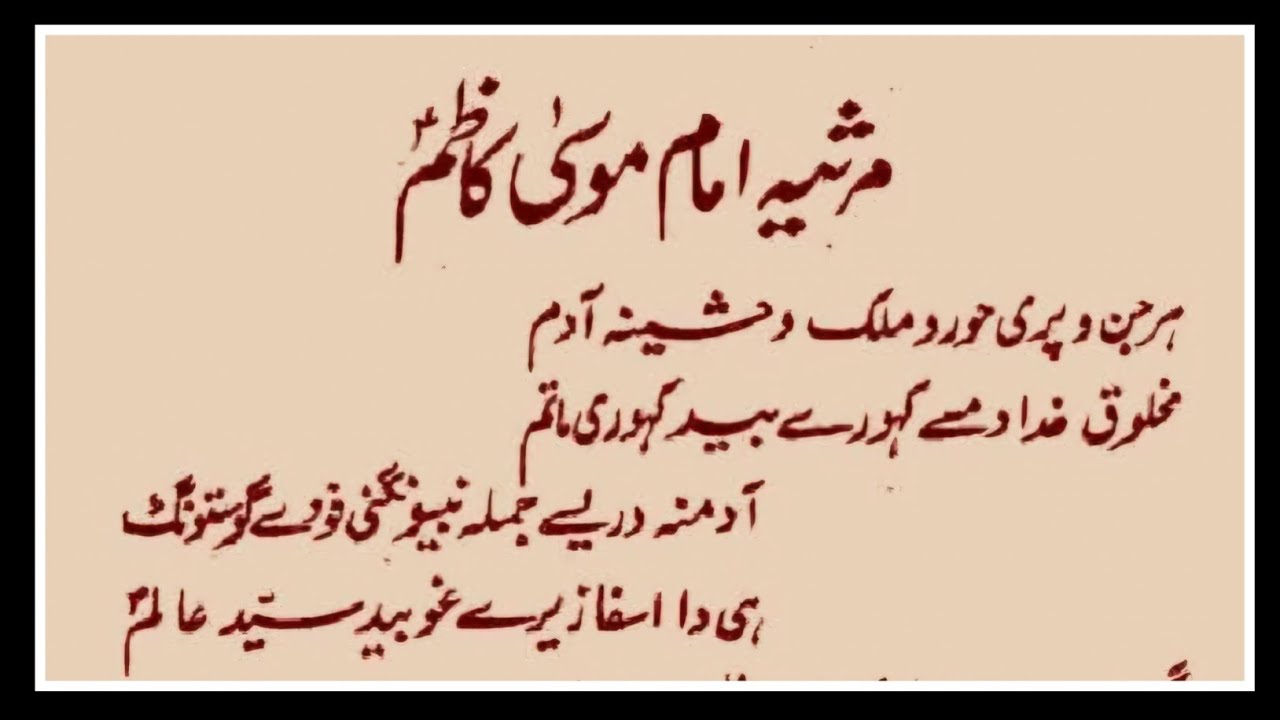 مرثیہ امام موسیٰ کاظمؑ
ہر جن و پری حور و ملک وحشینہ آدم
مخلوق خدا دمسے کہورے بید کہوری ماتم
آدمنہ دریسے جملہ نبیونگنی فودے گوستونگ
ہمی دا اسفا زیرے غوبید سیّد عالمؐ